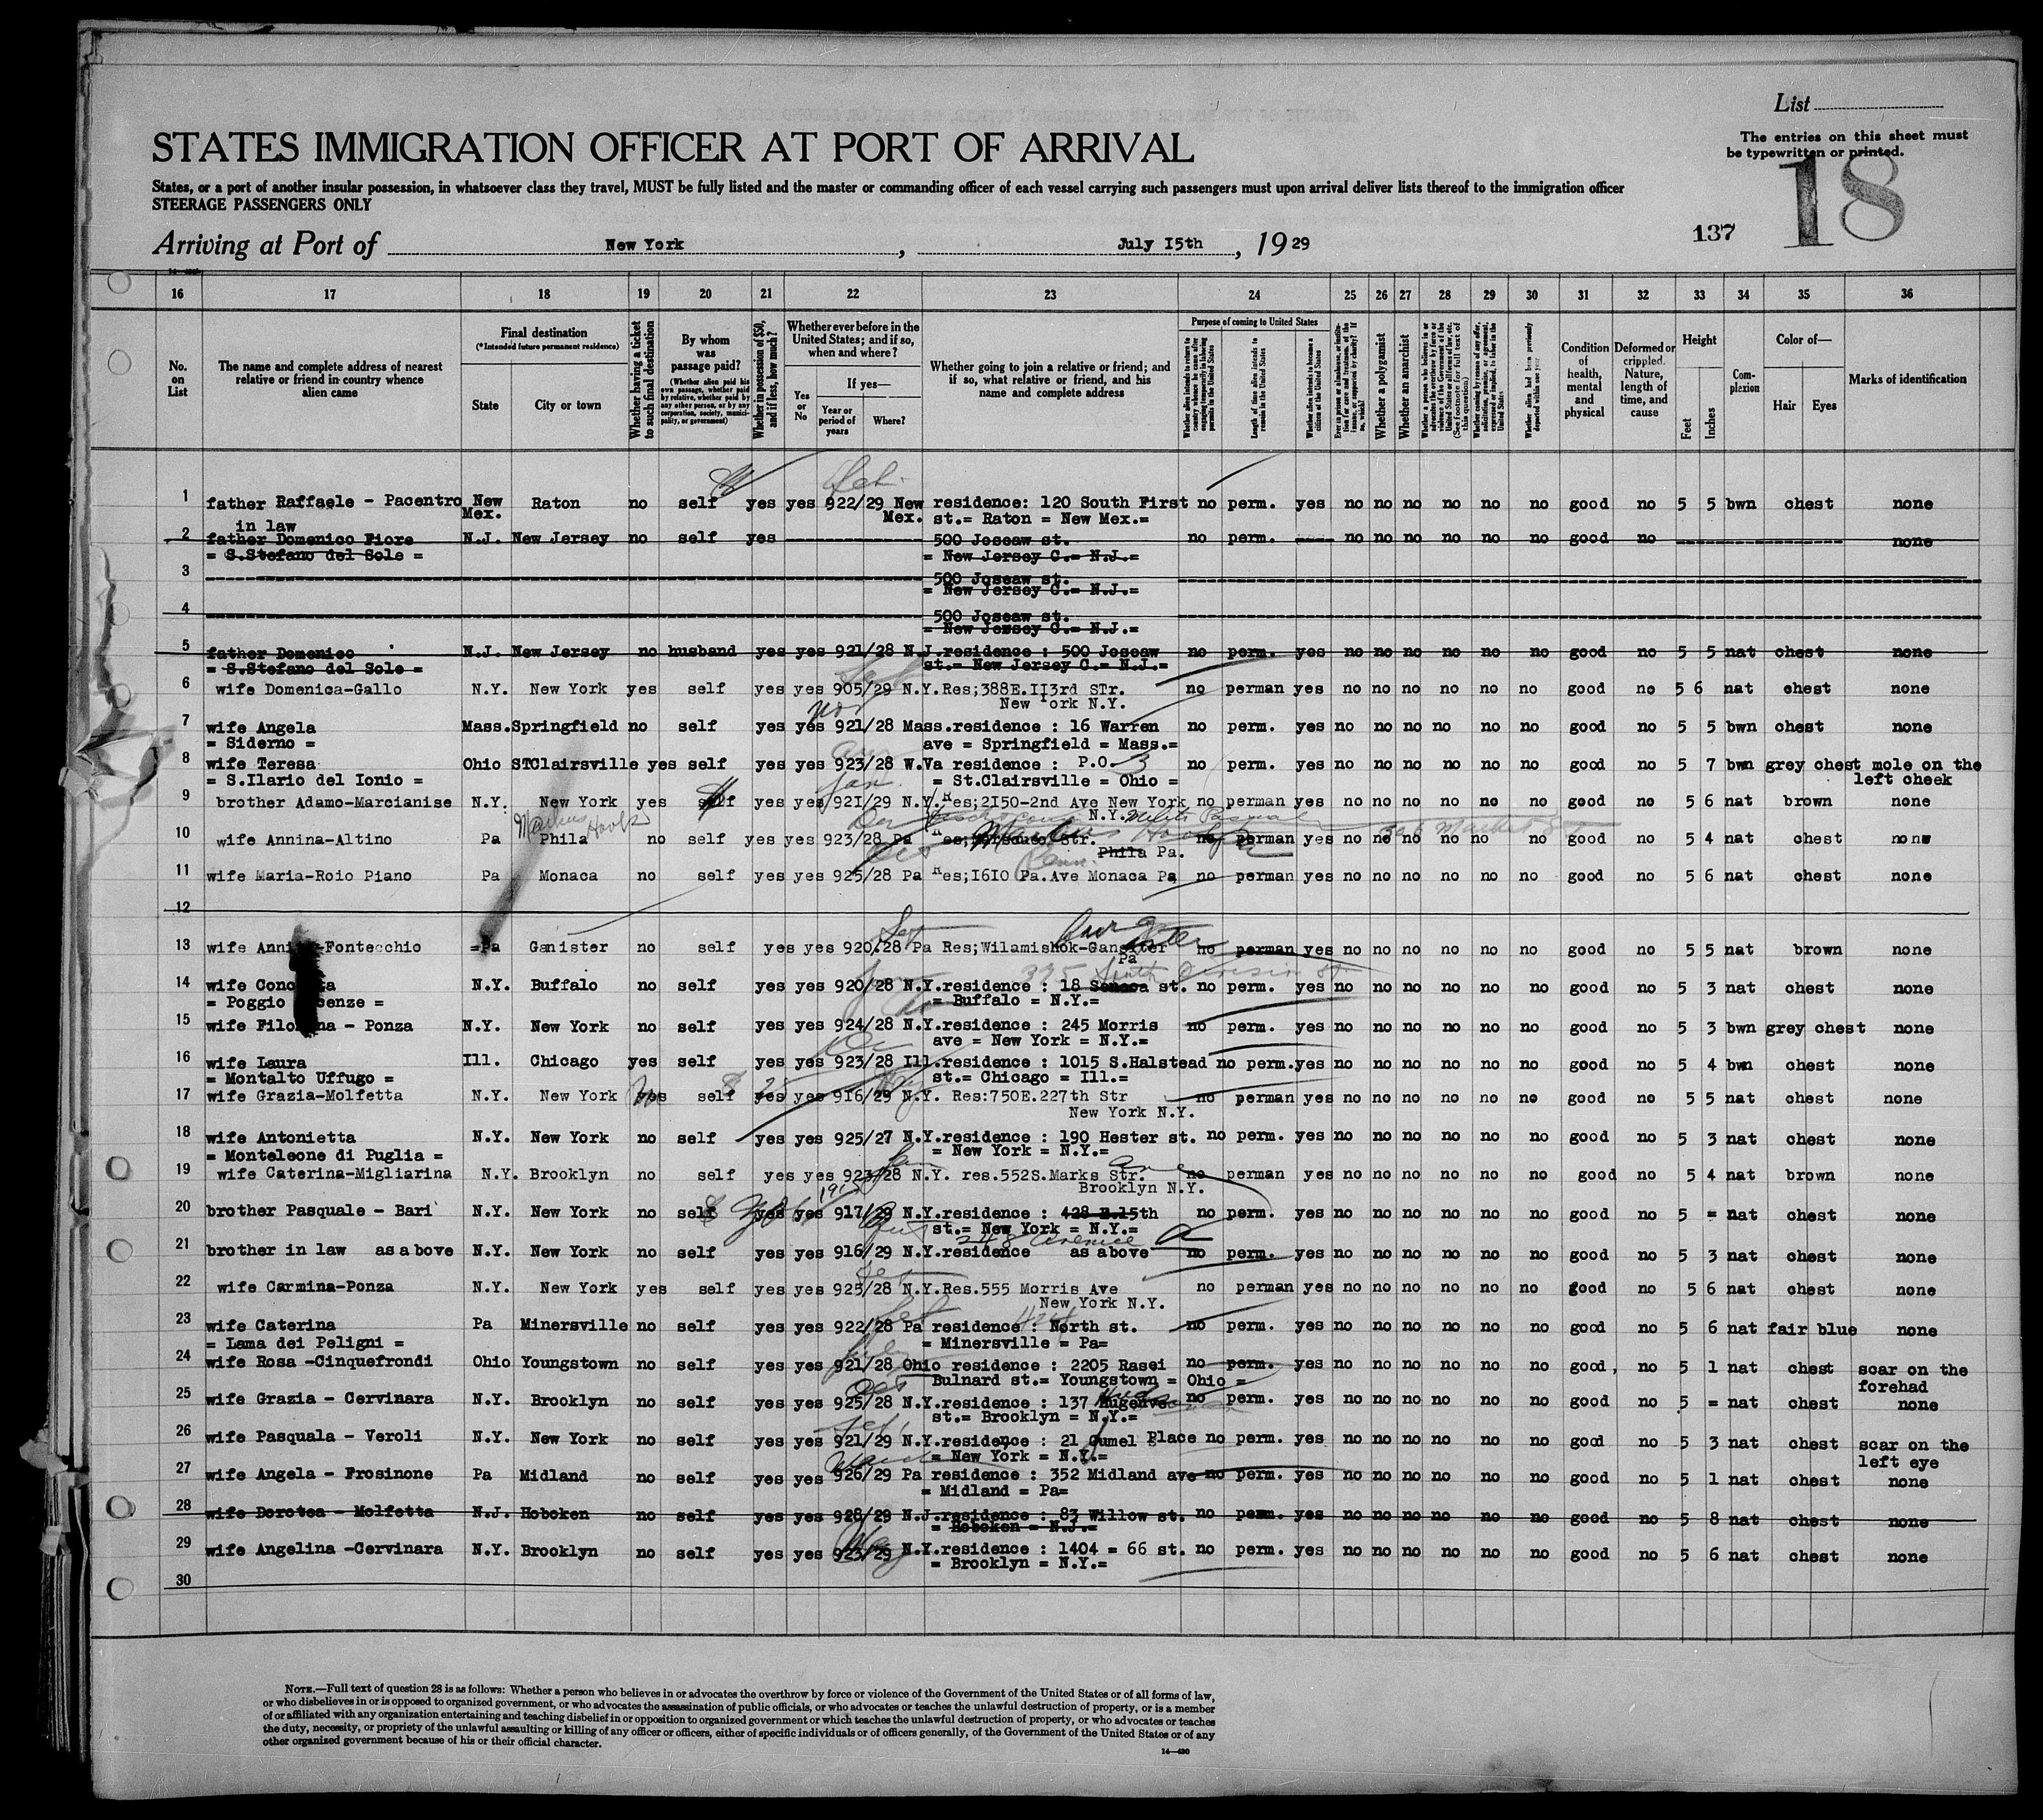 List
The entries on this sheet must
be typewritten or printed.
STATES IMMIGRATION OFFICER AT PORT OF ARRIVAL
18
States, or a port of another insular possession, in whatsoever class they travel, MUST be fully listed and the master or commanding officer of each vessel carrying such passengers must upon arrival deliver lists thereof to the immigration officer
STEERAGE PASSENGERS ONLY
137
Arriving at Port of New York, July I5th, 1929
16 17 18 19 20 21 22 23 24 25 26 27 28 29 30 31 32 33 34 35 36
No. on List
The name and complete address of nearest relative or friend in country whence alien came
Final destination
(*Intended future permanent residence)
State
City or town
Whether having a ticket to such final destination
By whom was passage paid?
(Whether alien paid his own passage, whether paid by relative, whether paid by any other person, or by any corporation, society, municipality, or government)
Whether in possession of $50, and if less, how much?
Whether ever before in the United States; and if so, when and where?
Yes or No
If yes—
Year or period of years
Where?
Whether going to join a relative or friend; and if so, what relative or friend, and his name and complete address
Purpose of coming to United States
Length of time alien intends to remain in the United States
Whether alien intends to become a citizen of the United States
Whether a polygamist
Whether an anarchist
Condition of health, mental and physical
Deformed or crippled. Nature, length of time, and cause
Height
Feet
Inches
Complexion
Color of—
Hair
Eyes
Marks of identification
1 father Raffaele - Pacentro New Raton no self yes yes 922/29 New residence: 120 South First no perm. yes no no no no no no good no 5 5 bwn chest none
Mex. Mex. st.= Raton = New Mex.=
in law
2 father Domenico Fiore N.J. New Jersey no self yes 500 Joseaw st. no perm. no no no no no no good no none
= S.Stefano del Sole = = New Jersey C.= N.J.=
3 500 Joseaw st.
= New Jersey C.= N.J.=
4 500 Joseaw st.
= New Jersey C.= N.J.=
5 father Domenico N.J. New Jersey no husband yes yes 921/28 N.J.residence : 500 Joseaw no perm. yes no no no no no no good no 5 5 nat chest none
= S.Stefano del Sole = st.= New Jersey C.= N.J.=
6 wife Domenica-Gallo N.Y. New York yes self yes yes 905/29 N.Y.Res;388E.II3rd STr. no perman yes no no no no no no good no 5 6 nat chest none
New York N.Y.
7 wife Angela Mass. Springfield no self yes yes 921/28 Mass.residence : 16 Warren no perm. yes no no no no no no good no 5 5 bwn chest none
= Siderno = ave = Springfield = Mass.=
8 wife Teresa Ohio STClairsville yes self yes yes 923/28 W.Va residence : P.O. 3 no perm. yes no no no no no no good no 5 7 bwn grey chest mole on the
= S.Ilario del Ionio = = St.Clairsville = Ohio = left cheek
9 brother Adamo-Marcianise N.Y. New York yes self yes yes 92I/29 N.Y.Res;2I50-2nd Ave New York no perman yes no no no no no no good no 5 6 nat brown none
N.Y.
Marcus Hook
10 wife Annina-Altino Pa Phila no self yes yes 923/28 Pa Str. no perman yes no no no no no no good no 5 4 nat chest none
Phila Pa.
11 wife Maria-Roio Piano Pa Monaca no self yes yes 925/28 Pa Res;I6I0 Pa.Ave Monaca Pa no perman yes no no no no no no good no 5 6 nat chest none
12
13 wife -Fontecchio =Pa Ganister no self yes yes 920/28 Pa Res;Wilamishok-Ganister no perman yes no no no no no no good no 5 5 nat brown none
Pa
395 South Division St
14 wife N.Y. Buffalo no self yes yes 920/28 N.Y.residence : 18 Seneca st. no perm. yes no no no no no no good no 5 3 nat chest none
= Poggio = = Buffalo = N.Y.=
15 wife - Ponza N.Y. New York no self yes yes 924/28 N.Y.residence : 245 Morris no perm. yes no no no no no no good no 5 3 bwn grey chest none
ave = New York = N.Y.=
16 wife Laura Ill. Chicago yes self yes yes 923/28 Ill.residence : 1015 S.Halstead no perm.yes no no no no no no good no 5 4 bwn chest none
= Montalto Uffugo = st.= Chicago = Ill.=
17 wife Grazia-Molfetta N.Y. New York yes self yes yes 9I6/29 N.Y. Res:750E.227th Str no perman yes no no no no no no good no 5 5 nat chest none
New York N.Y.
18 wife Antonietta N.Y. New York no self yes yes 925/27 N.Y.residence : 190 Hester st. no perm. yes no no no no no no good no 5 3 nat chest none
= Monteleone di Puglia = = New York = N.Y.=
19 wife Caterina-Migliarina N.Y. Brooklyn no self yes yes 923/28 N.Y. res.552S.Marks Str. no perman yes no no no no no no good no 5 4 nat brown none
Brooklyn N.Y.
20 brother Pasquale - Bari N.Y. New York no self yes yes 917/29 N.Y.residence : 428 E.15th no perm. yes no no no no no no good no 5 = nat chest none
st.= New York = N.Y.=
21 brother in law as above N.Y. New York no self yes yes 916/29 N.Y.residence as above no perm. yes no no no no no no good no 5 3 nat chest none
22 wife Carmina-Ponza N.Y. New York yes self yes yes 925/28 N.Y.Res.555 Morris Ave no perman yes no no no no no no good no 5 6 nat chest none
New York N.Y.
23 wife Caterina Pa Minersville no self yes yes 922/28 Pa residence : North st. no perm. yes no no no no no no good no 5 6 nat fair blue none
= Lama dei Peligni = = Minersville = Pa=
24 wife Rosa -Cinquefrondi Ohio Youngstown no self yes yes 921/28 Ohio residence : 2205 Rasei no perm. yes no no no no no no good, no 5 1 nat chest scar on the
Bulnard st.= Youngstown = Ohio = forehad
25 wife Grazia - Cervinara N.Y. Brooklyn no self yes yes 925/28 N.Y.residence : 137 no perm. yes no no no no no no good no 5 = nat chest none
st.= Brooklyn = N.Y.=
26 wife Pasquala - Veroli N.Y. New York no self yes yes 921/29 N.Y.residence : 21 Place no perm. yes no no no no no no good no 5 3 nat chest scar on the
= New York = N.Y.= left eye
27 wife Angela - Frosinone Pa Midland no self yes yes 926/29 Pa residence : 352 Midland ave no perm. yes no no no no no no good no 5 1 nat chest none
= Midland = Pa=
28 wife Dorotea - Molfetta N.J. Hoboken no self yes yes 928/29 N.J.residence : 83 Willow st. no perm. yes no no no no no no good no 5 8 nat chest none
= Hoboken = N.J.=
29 wife Angelina -Cervinara N.Y. Brooklyn no self yes yes 923/29 N.Y.residence : 1404 = 66 st. no perm. yes no no no no no no good no 5 6 nat chest none
= Brooklyn = N.Y.=
30
NOTE.—Full text of question 28 is as follows: Whether a person who believes in or advocates the overthrow by force or violence of the Government of the United States or of all forms of law,
or who disbelieves in or is opposed to organized government, or who advocates the assassination of public officials, or who advocates or teaches the unlawful destruction of property, or is a member
of or affiliated with any organization entertaining and teaching disbelief in or opposition to organized government or which teaches the unlawful destruction of property, or who advocates or teaches
the duty, necessity, or propriety of the unlawful assaulting or killing of any officer or officers, either of specific individuals or of officers generally, of the Government of the United States or of any
other organized government because of his or their official character.
14—430